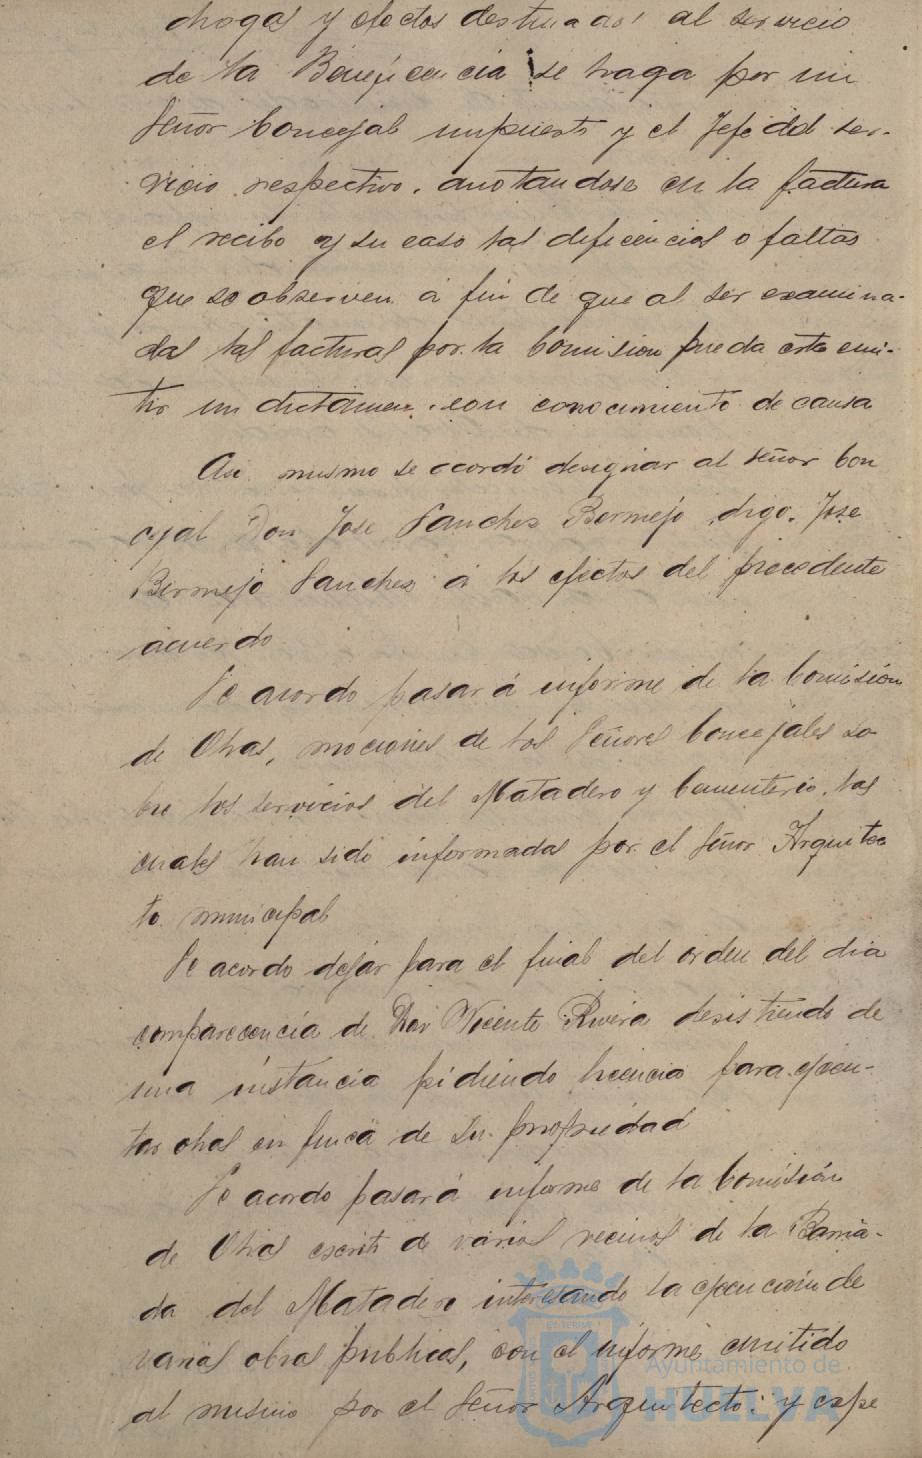 drogas y efectos destinados al servicio
de la Beneficencia se haga por un
Señor Concejal y el Jefe del ser-
vicio respectivo, anotandose en la factura
el recibo y su caso las deficiencias o faltas
que se observen á fin de que al ser examina-
das las facturas por la Comision pueda esta emi-
tir un dictamen con conocimiento de causa
Asi mismo se acordó designar al señor Con
cejal Don Jose Sanchez Bermejo, digo, Jose
Bermejo Sanchez á los efectos del precedente
acuerdo
Se acordo pasar á informe de la Comisión
de Obras, mociones de los Señores Concejales so-
bre los servicios del Matadero y Cementerio, las
cuales han sido informadas por el Señor Arquitec
to municipal
Se acordo dejar para el final del orden del dia
comparecencia de Don Vicente Rivera desistiendo de
una instancia pidiendo licencia para ejecu-
tar obras en finca de su propiedad
Se acordo pasar á informe de la Comisión
de Obras escrito de varios vecinos de la Barria-
da del Matadero interesando la ejecución de
varias obras publicas, con el informe emitido
al mismo por el Señor Arquitecto; y expe
Ayuntamiento de
HUELVA